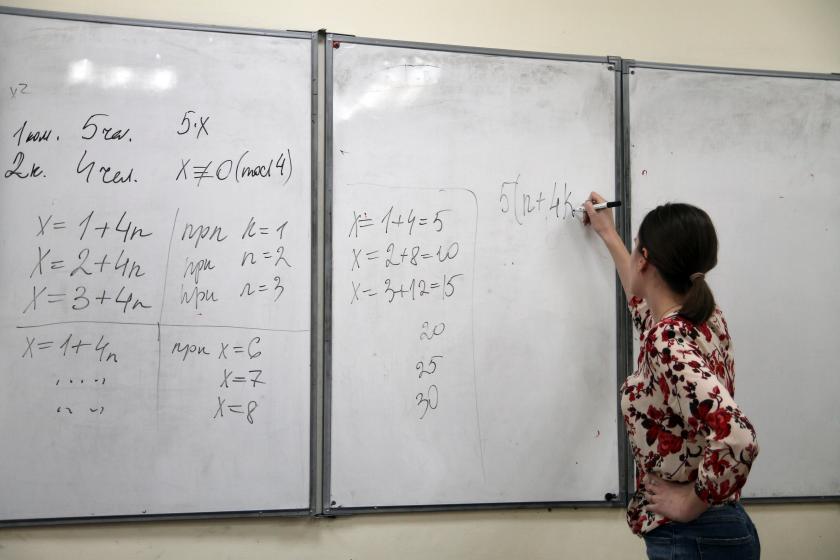 x2
1 ком. 5 чел. 5·x
2 к. 4 чел. x≢0(mod 4)
x=1+4n при k=1
x=2+4n при n=2
x=3+4n при n=3
x=1+4n при x=6
..... x=7
.. .. x=8
x=1+4=5
x=2+8=10
x=3+12=15
20
25
30
5(n+4k